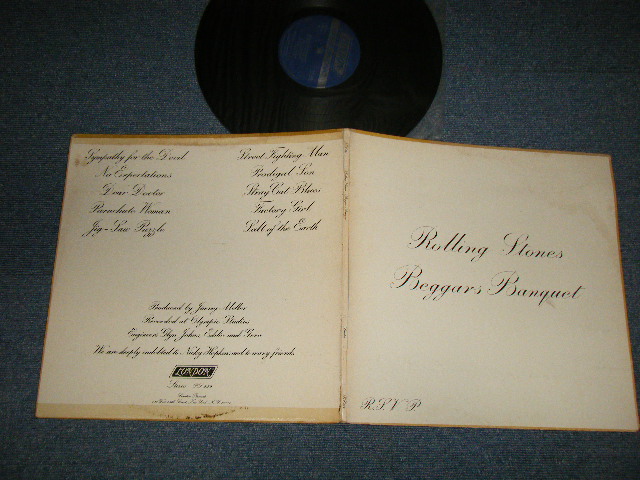 Sympathy for the Devil
No Expectations
Dear Doctor
Parachute Woman
Jig-Saw Puzzle
Street Fighting Man
Prodigal Son
Stray Cat Blues
Factory Girl
Salt of the Earth
Produced by Jimmy Miller
Recorded at Olympic Studios
Engineers Glyn Johns, Eddie and Gene
We are deeply indebted to Nicky Hopkins and to many friends
LONDON
Stereo PS 539
Rolling Stones
Beggars Banquet
R.S.V.P.